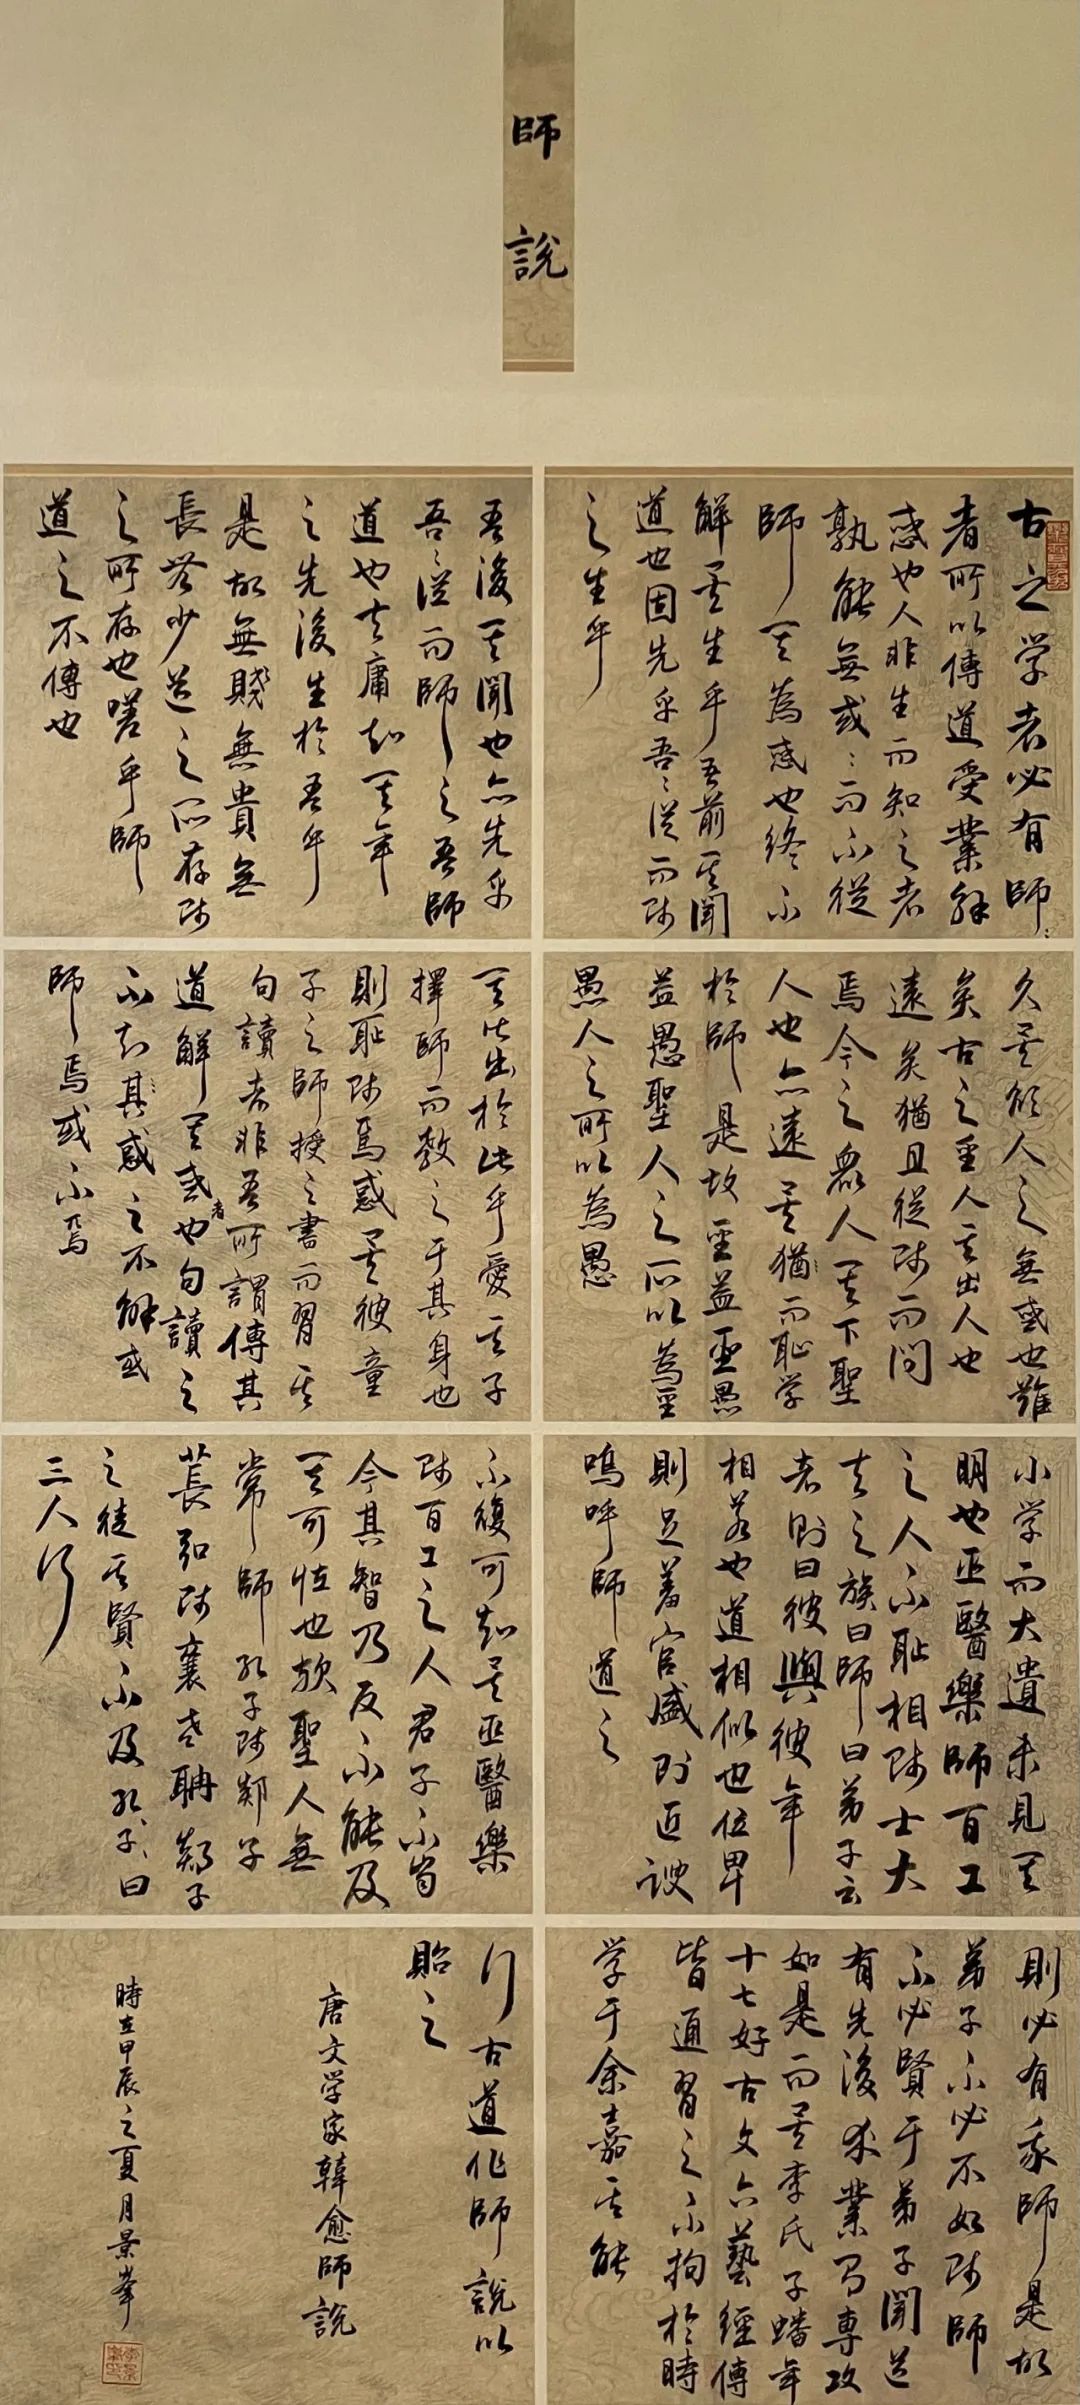 師說
古之学者必有師〻
者所以傳道受業解
惑也人非生而知之者
孰能無或〻而不從
師其為惑也終不
解矣生乎吾前其聞
道也固先乎吾〻從而師
之生乎
吾後其聞也亦先乎
吾〻從而師之吾師
道也夫庸知其年
之先後生於吾乎
是故無賤無貴無
長無少道之所存師
之所存也嗟乎師
道之不傳也
久矣欲人之無或也難
矣古之聖人其出人也
遠矣猶且從師而問
焉今之眾人其下聖
人也亦遠矣猶而恥学
於師是故聖益聖愚
益愚聖人之所以為聖
愚人之所以為愚
其皆出於此乎愛其子
擇師而教之于其身也
則恥師焉惑矣彼童
子之師授之書而習其
句讀者非吾所謂傳其
道解其或者也句讀之
不知其惑之不解或
師焉或不焉
小学而大遺未見其
明也巫醫樂師百工
之人不恥相師士大
夫之族曰師曰弟子云
者則曰彼與彼年
相若也道相似也位卑
則足羞官盛則近諛
嗚呼師道之
不復可知矣巫醫樂
師百工之人君子不齒
今其智乃反不能及
其可怪也歟聖人無
常師孔子師郯子
萇弘師襄老聃郯子
之徒其賢不及孔〻子〻曰
三人行
則必有我師是故
弟子不必不如師師
不必賢于弟子聞道
有先後术業有專攻
如是而矣李氏子蟠年
十七好古文六藝經傳
皆通習之不拘於時
学于余嘉其能
行古道作師說以
貽之
唐文学家韓愈師說
時在甲辰之夏月景峯